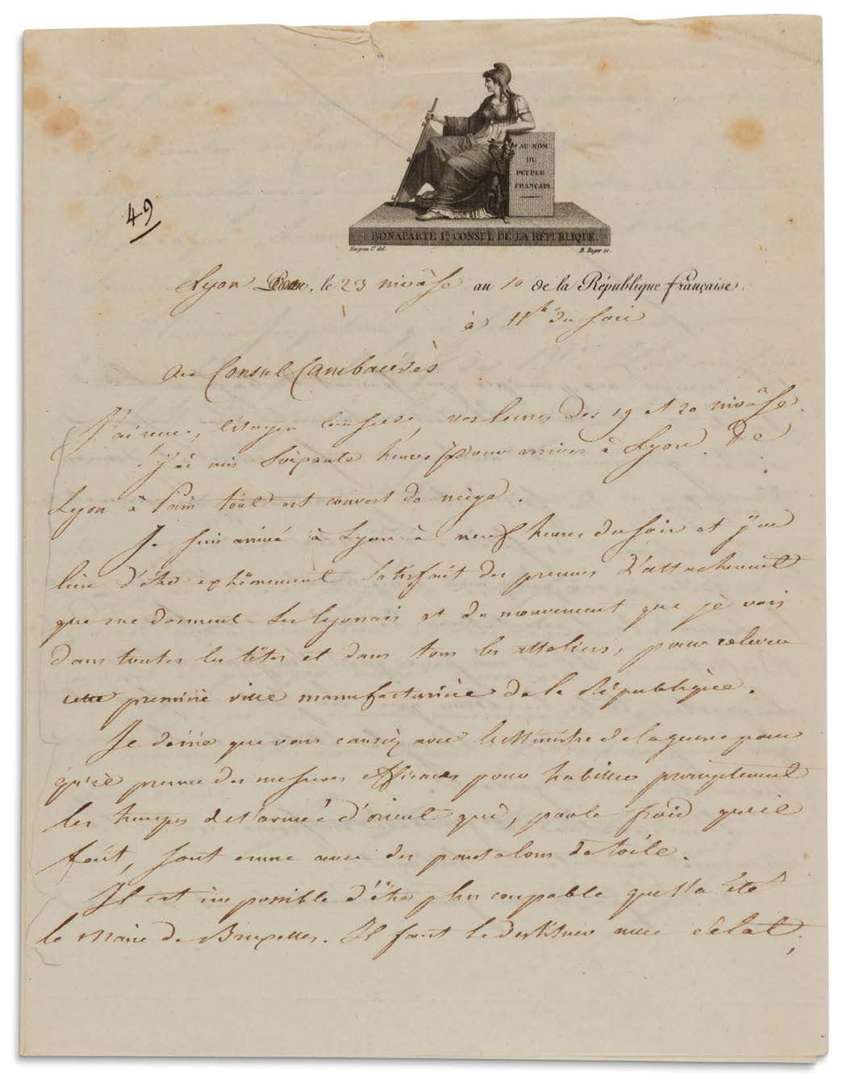 AU NOM
DU
PEUPLE
FRANÇAIS
BONAPARTE Ier CONSUL DE LA RÉPUBLIQUE.
B. Roger sc.
49
Lyon, le 23 nivôse an 10 de la République française.
à 11h du soir
Au Consul Cambacérès
J'ai reçu, Citoyen Consul, vos lettres des 19 et 20 nivôse.
J'ai mis soixante heures pour arriver à Lyon. De
Lyon à Paris tout est couvert de neige.
Je suis arrivé à Lyon à neuf heures du soir et j'ai
lieu d'être extrêmement satisfait des preuves d'attachement
que me donnent les lyonais et du mouvement que je vois
dans toutes les têtes et dans tous les atteliers, pour relever
cette première ville manufacturière de la République.
Je désire que vous causiez avec le Ministre de la guerre pour
qu'il prenne des mesures efficaces pour habiller promptement
les troupes de l'armée d'orient qui, par le froid qu'il
fait, sont encore avec des pantalons de toile.
Il est impossible d'être plus coupable que l'a été
le Maire de Bruxelles. Il faut le destituer avec éclat,